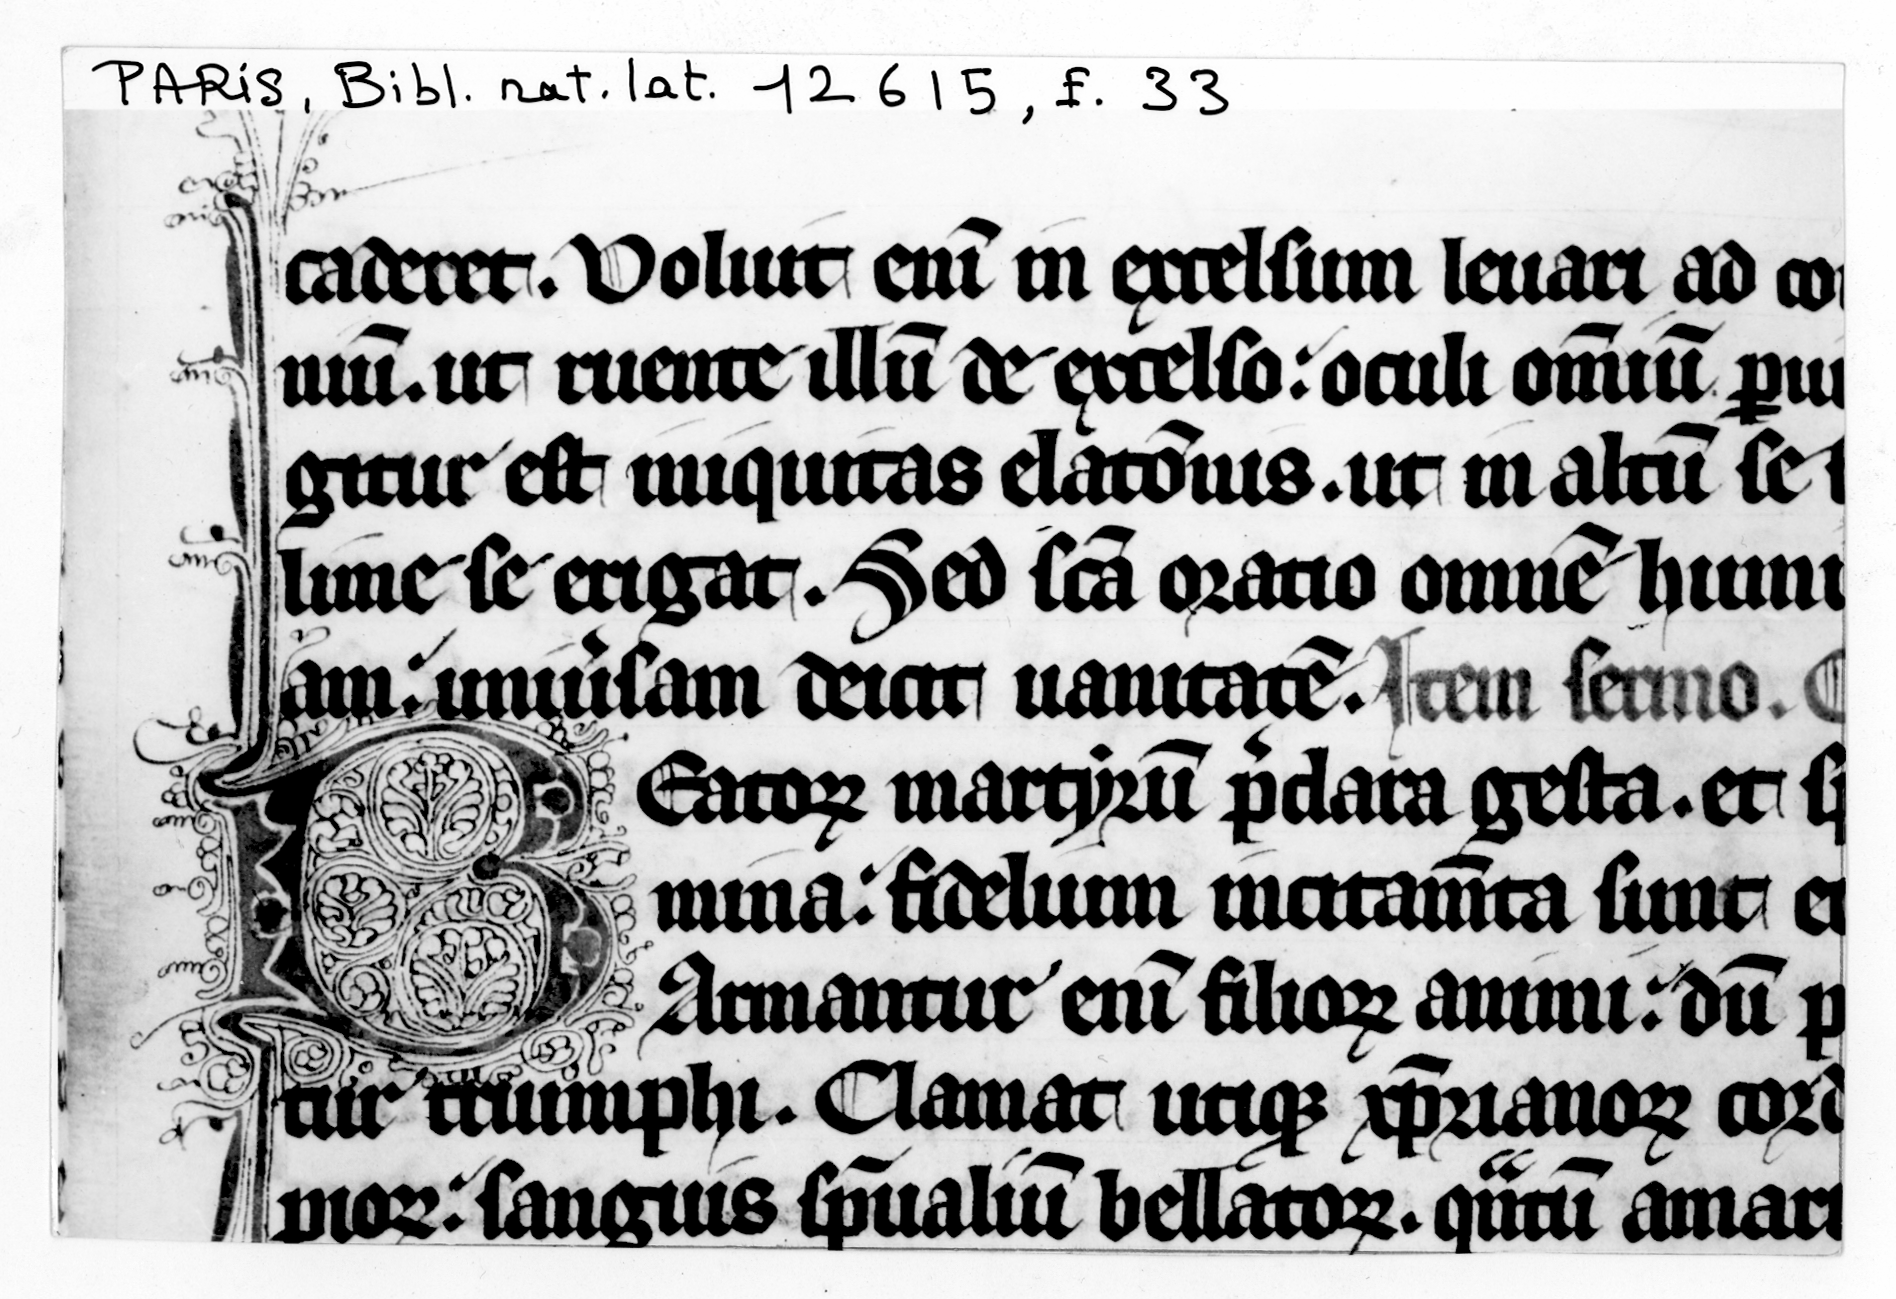 PARiS, Bibl. nat. lat. 12615, f. 33
caderet. Voluit eni̅ in excelsum leuari ad co
niu̅. ut ruente illu̅ de excelso: oculi om̅iu̅
gitur est iniquitas elato̅nis. ut in altu̅ se
lime se erigat. Sed sc̅a oratio omne̅ humi
am: uniu̾sam deicit uanitate̅. Item sermo.
BEatoꝝ martyru̅ p̾clara gesta. et
mina: fidelium incitam̅ta sunt et
Armantur eni̅ filioꝝ animi: du̅ p
tur triumphi. Clamat utiqꝫ xp̅ianoꝝ cord
moꝝ: sanguis sp̅ualiu̅ bellatoꝝ. amari